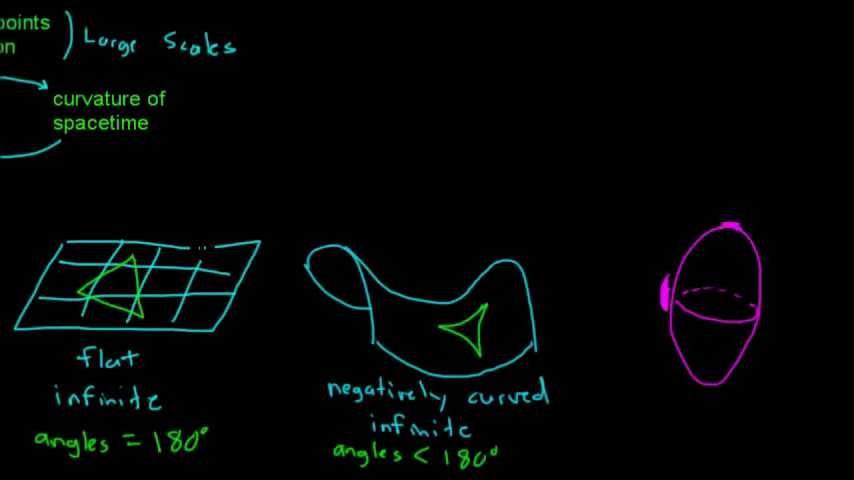 points
on
Large Scales
curvature of
spacetime
flat
infinite
angles = 180°
negatively curved
infinite
angles < 180°